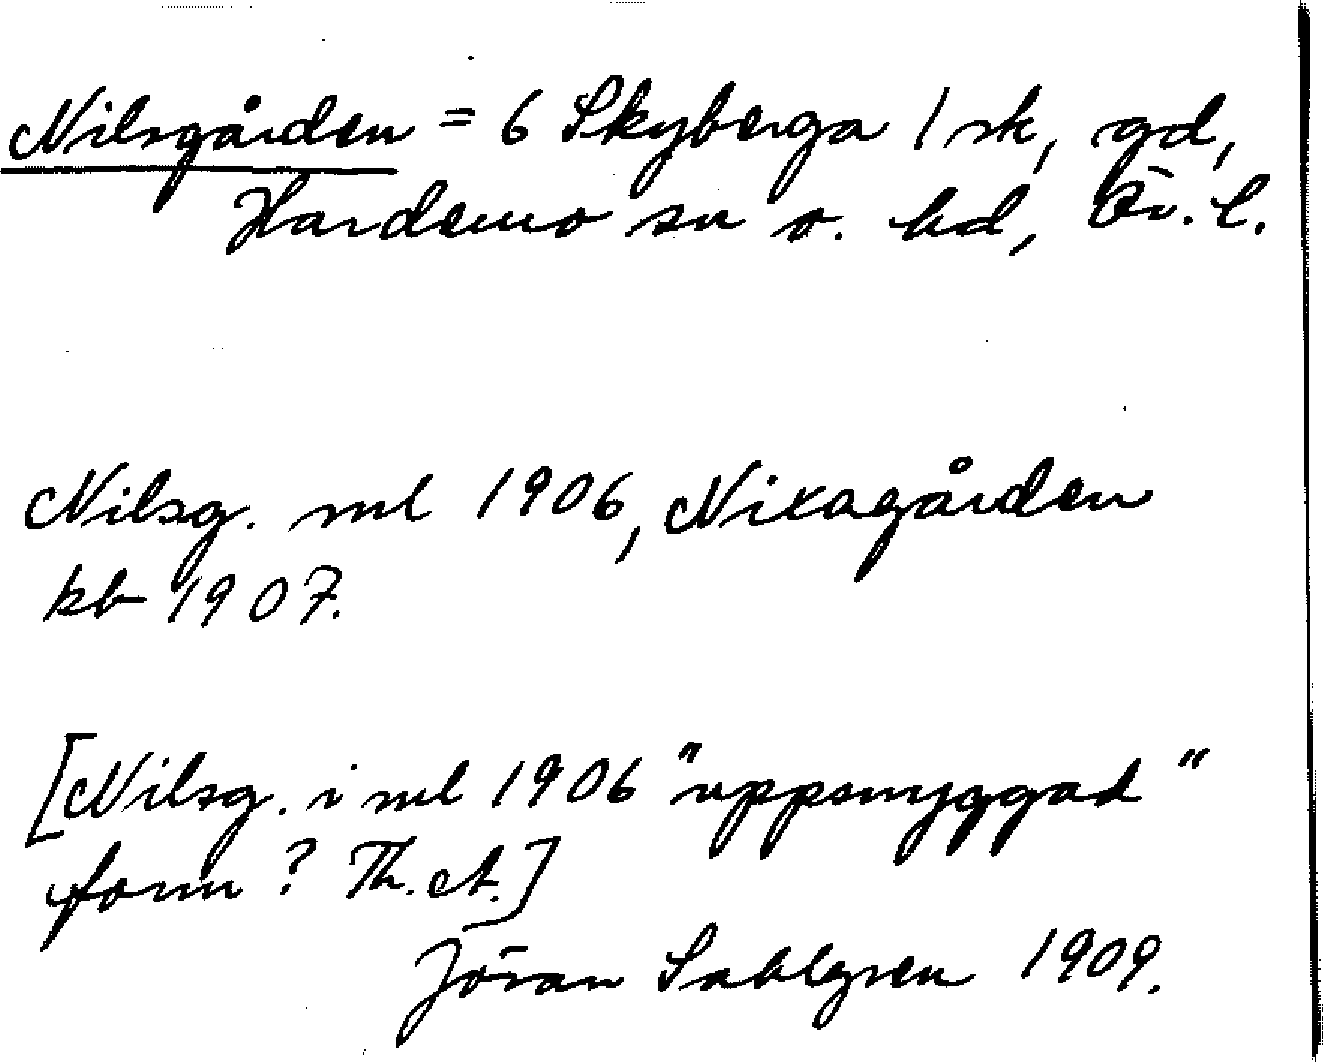 Nilsgården = 6 Skyberga 1 sk, gd,
Hardemo sn o. hd, Ör. l.
Nilsg. ml 1906, Nixagården
kb 1907.
[Nilsg. i ml 1906 "uppsnyggad"
form? Th. A.]
Jöran Sahlgren 1909.